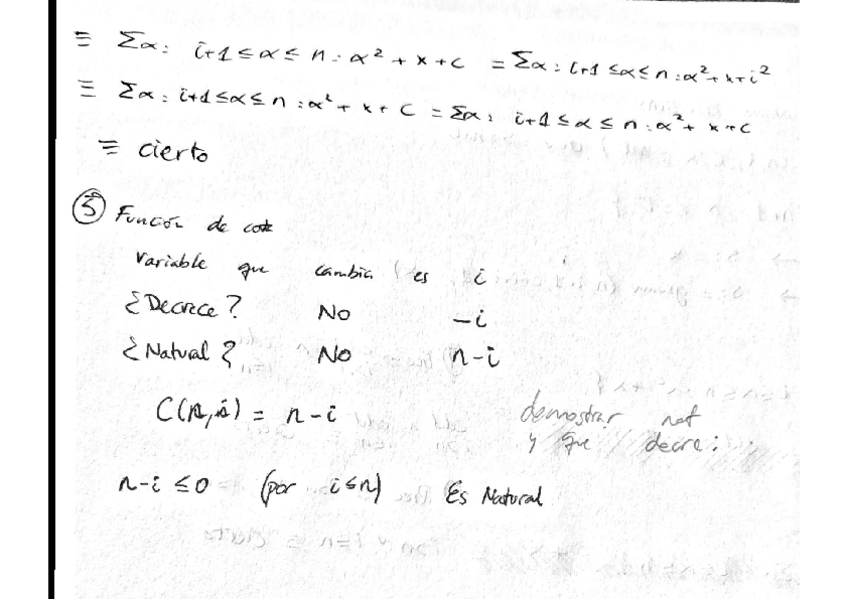 ≡ Σα: i+1 ≤ α ≤ n : α² + x + c = Σα : i+1 ≤ α ≤ n : α² + x + i²
≡ Σα : i+1 ≤ α ≤ n : α² + x + c = Σα : i+1 ≤ α ≤ n : α² + x + c
≡ cierto
⑤ Función de cota
Variable que cambia es i
¿Decrece? No -i
¿Natural? No n-i
C(n,i) = n-i
demostrar nat
y que decre:
n-i ≤ 0 (por i ≤ n) Es Natural